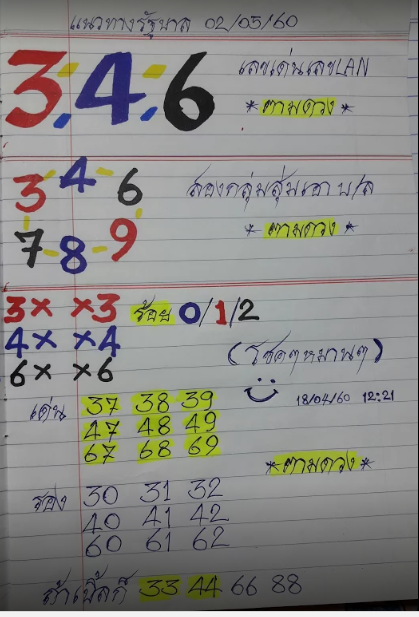 แนวทางรัฐบาล 02/05/60
3.4.6 เลขเด่นเลขLAN
*ตามดวง*
3 4 6 สองกลุ่มสุ่มเอา บ/ล
7 8 9 *ตามดวง*
3× ×3 ร้อย 0/1/2
4× ×4
6× ×6 (โชคๆหมานๆ)
18/04/60 12:21
เด่น 37 38 39
47 48 49
67 68 69
*ตามดวง*
รอง 30 31 32
40 41 42
60 61 62
33 44 66 88